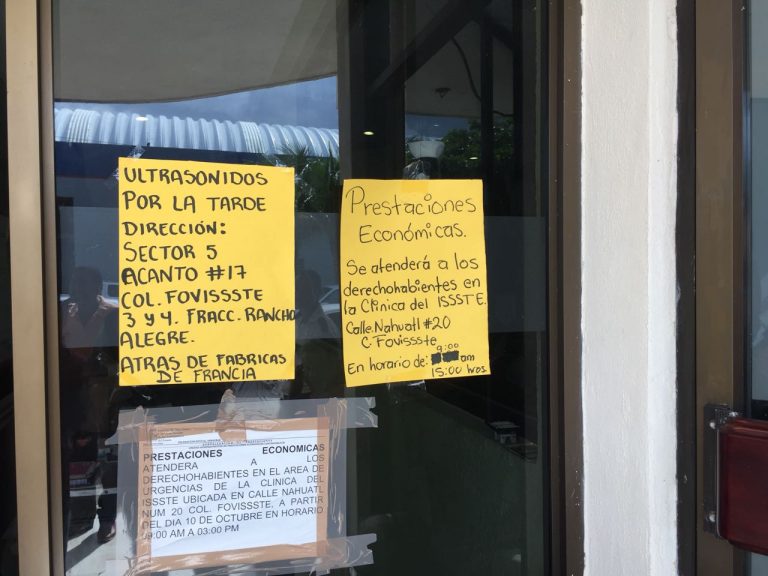 ULTRASONIDOS
POR LA TARDE
DIRECCIÓN:
SECTOR 5
ACANTO #17
COL. FOVISSSTE
3 y 4. FRACC. RANCHO
ALEGRE.
ATRAS DE FABRICAS
DE FRANCIA
Prestaciones
Económicas.
Se atenderá a los
derechohabientes en
la Clinica del ISSSTE.
Calle.Nahuatl #20
C. Fovissste
En horario de: 9:00 am
15:00 hros
PRESTACIONES ECONOMICAS
ATENDERA A LOS
DERECHOHABIENTES EN EL AREA DE
URGENCIAS DE LA CLINICA DEL
ISSSTE UBICADA EN CALLE NAHUATL
NUM 20 COL. FOVISSSTE, A PARTIR
DEL DIA 10 DE OCTUBRE EN HORARIO
09:00 AM A 03:00 PM